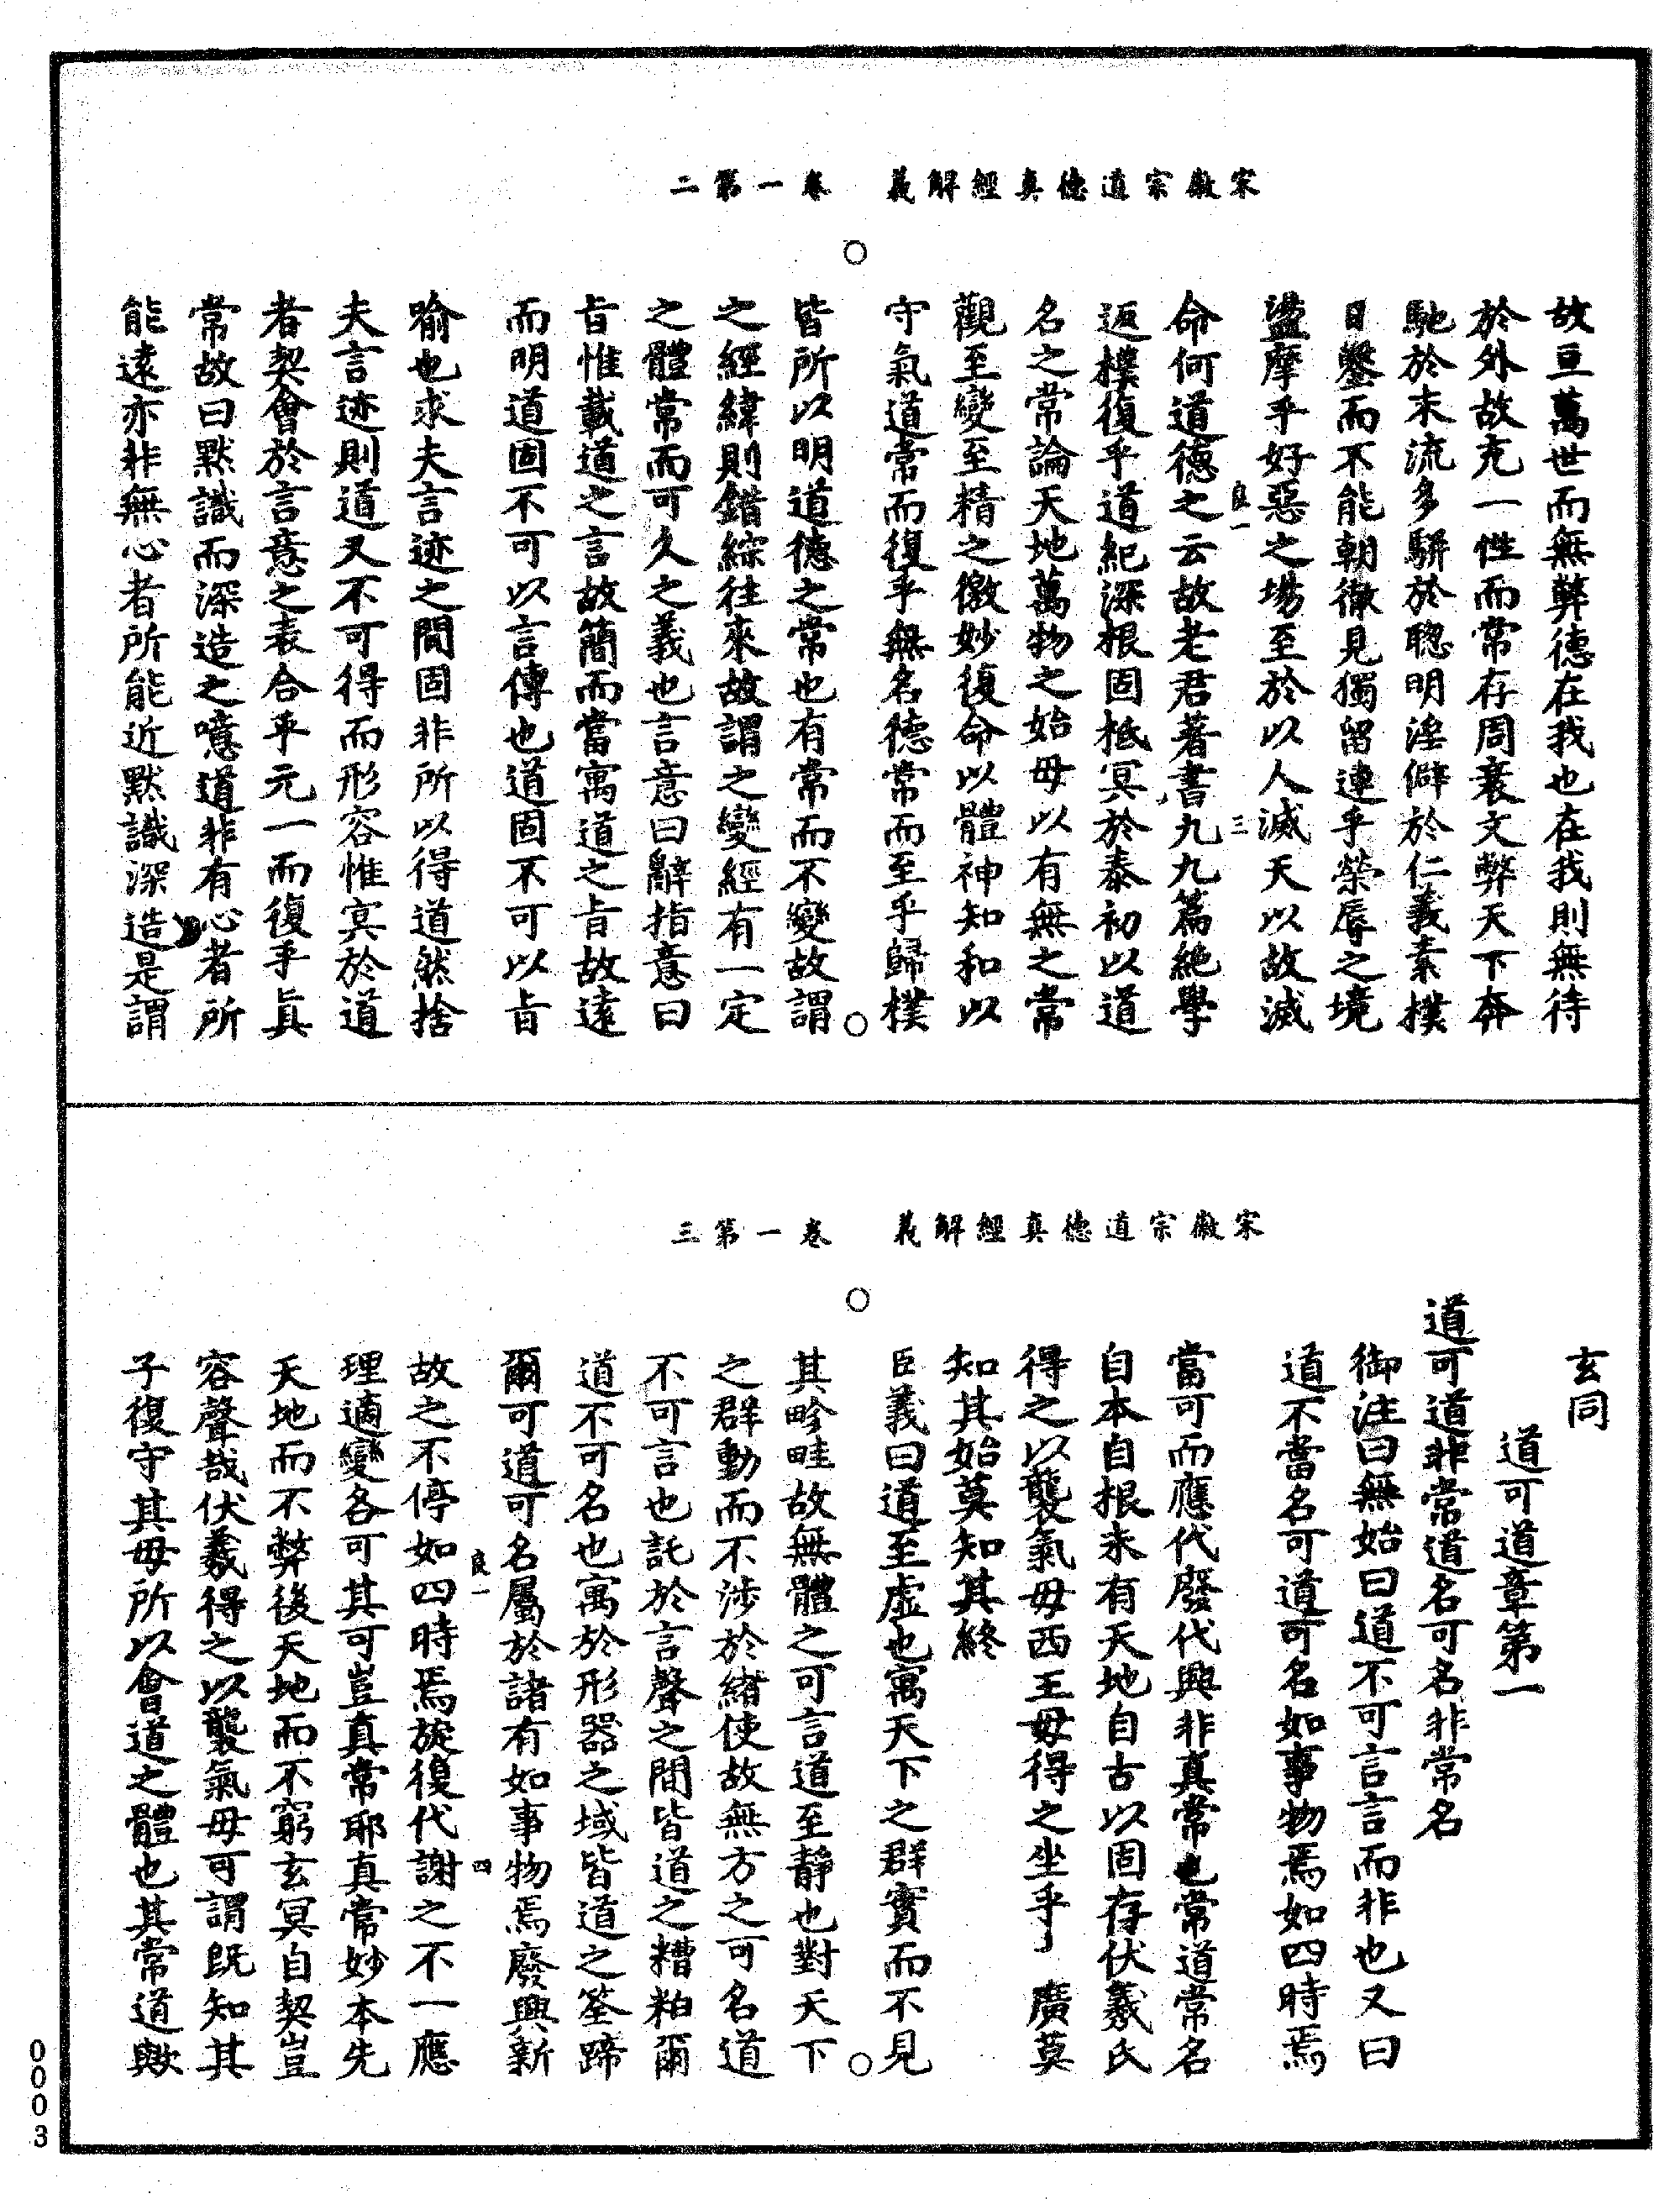 宋徽宗道德真經解義　卷一第二
故亘萬世而無弊德在我也在我則無待
於外故充一性而常存周衰文弊天下奔
馳於末流多駢於聰明淫僻於仁義素樸
日鑿而不能朝徹見獨留連乎榮辱之境
盪摩乎好惡之場至於以人滅天以故滅
良一　三
命何道德之云故老君著書九九篇絶學
返樸復乎道紀深根固柢冥於泰初以道
名之常論天地萬物之始母以有無之常
觀至變至精之徼妙復命以體神知和以
守氣道常而復乎無名德常而至乎歸樸
皆所以明道德之常也有常而不變故謂
之經緯則錯綜往來故謂之變經有一定
之體常而可久之義也言意曰辭指意曰
旨惟載道之言故簡而當寓道之旨故遠
而明道固不可以言傳也道固不可以旨
喻也求夫言迹之間固非所以得道然捨
夫言迹則道又不可得而形容惟寘於道
者契會於言意之表合乎元一而復乎真
常故曰默識而深造之噫道非有心者所
能遠亦非無心者所能近默識深造是謂
宋徽宗道德真經解義　卷一第三
玄同
道可道章第一
道可道非常道名可名非常名
御注曰無始曰道不可言言而非也又曰
道不當名可道可名如事物焉如四時焉
當可而應代廢代興非真常也常道常名
自本自根未有天地自古以固存伏羲氏
得之以襲氣母西王母得之坐乎　廣莫
知其始莫知其終
臣義曰道至虛也寓天下之群實而不見
其畛畦故無體之可言道至靜也對天下
之群動而不涉於緒使故無方之可名道
不可言也託於言聲之間皆道之糟粕爾
道不可名也寓於形器之域皆道之筌蹄
爾可道可名屬於諸有如事物焉廢興新
良一　四
故之不停如四時焉旋復代謝之不一應
理適變各可其可豈真常耶真常妙本先
天地而不弊後天地而不窮玄冥自契豈
容聲哉伏羲得之以襲氣母可謂既知其
子復守其母所以會道之體也其常道歟
0003